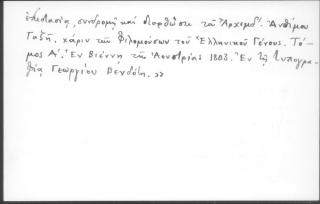 ἐπιστασίᾳ, συνδρομῇ καὶ διορθώσει τοῦ Ἀρχιμδ. Ἀνθίμου
Γαζῆ. χάριν τῶν φιλομούσων τοῦ Ἑλληνικοῦ Γένους. Τό-
μος Α΄. Ἐν Βιέννῃ τῆς Ἀουστρίας 1803. Ἐν τῇ τυπογρα-
φίᾳ Γεωργίου Βενδότη. »